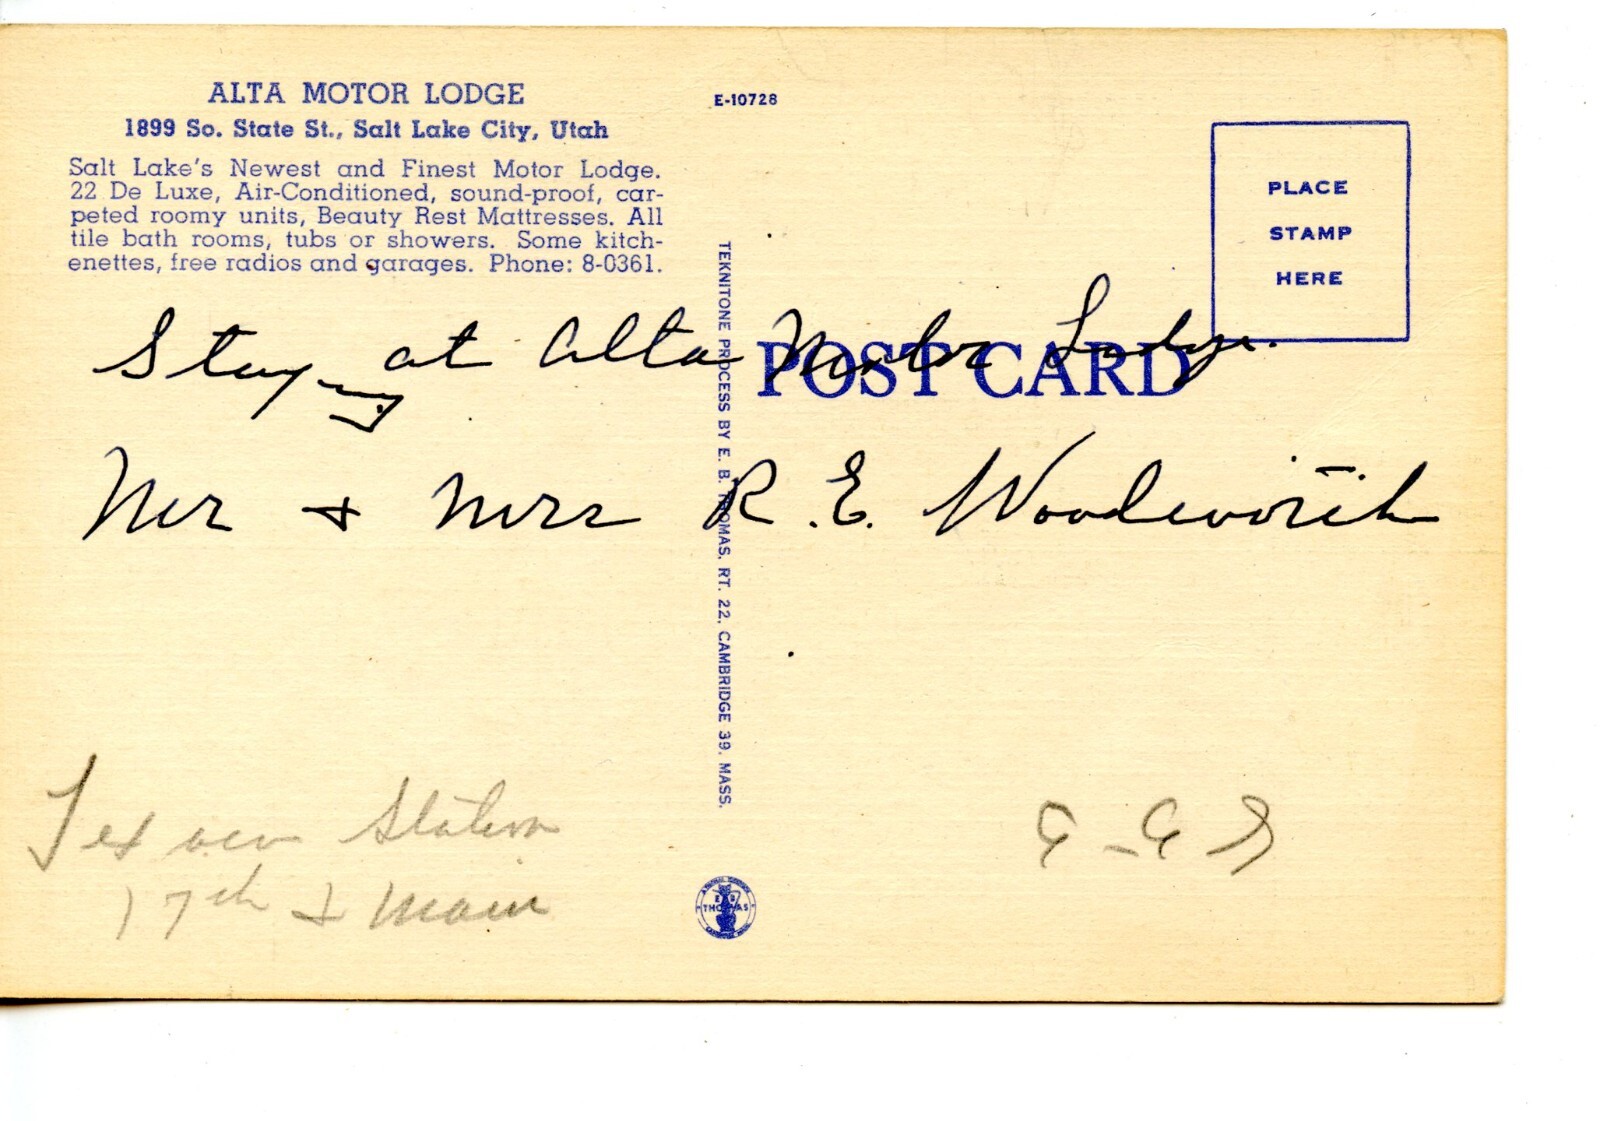 ALTA MOTOR LODGE
1899 So. State St., Salt Lake City, Utah
Salt Lake's Newest and Finest Motor Lodge.
22 De Luxe, Air-Conditioned, sound-proof, car-
peted roomy units, Beauty Rest Mattresses. All
tile bath rooms, tubs or showers. Some kitch-
enettes, free radios and garages. Phone: 8-0361.
E-10728
PLACE
STAMP
HERE
POST CARD
Staying at Alta Motor Lodge.
Mr & Mrs R. E. Woodworth
TEKNITONE PROCESS BY E. B. THOMAS, RT. 22, CAMBRIDGE 39, MASS.
Texaco Station
17th & Main
E B
THOMAS